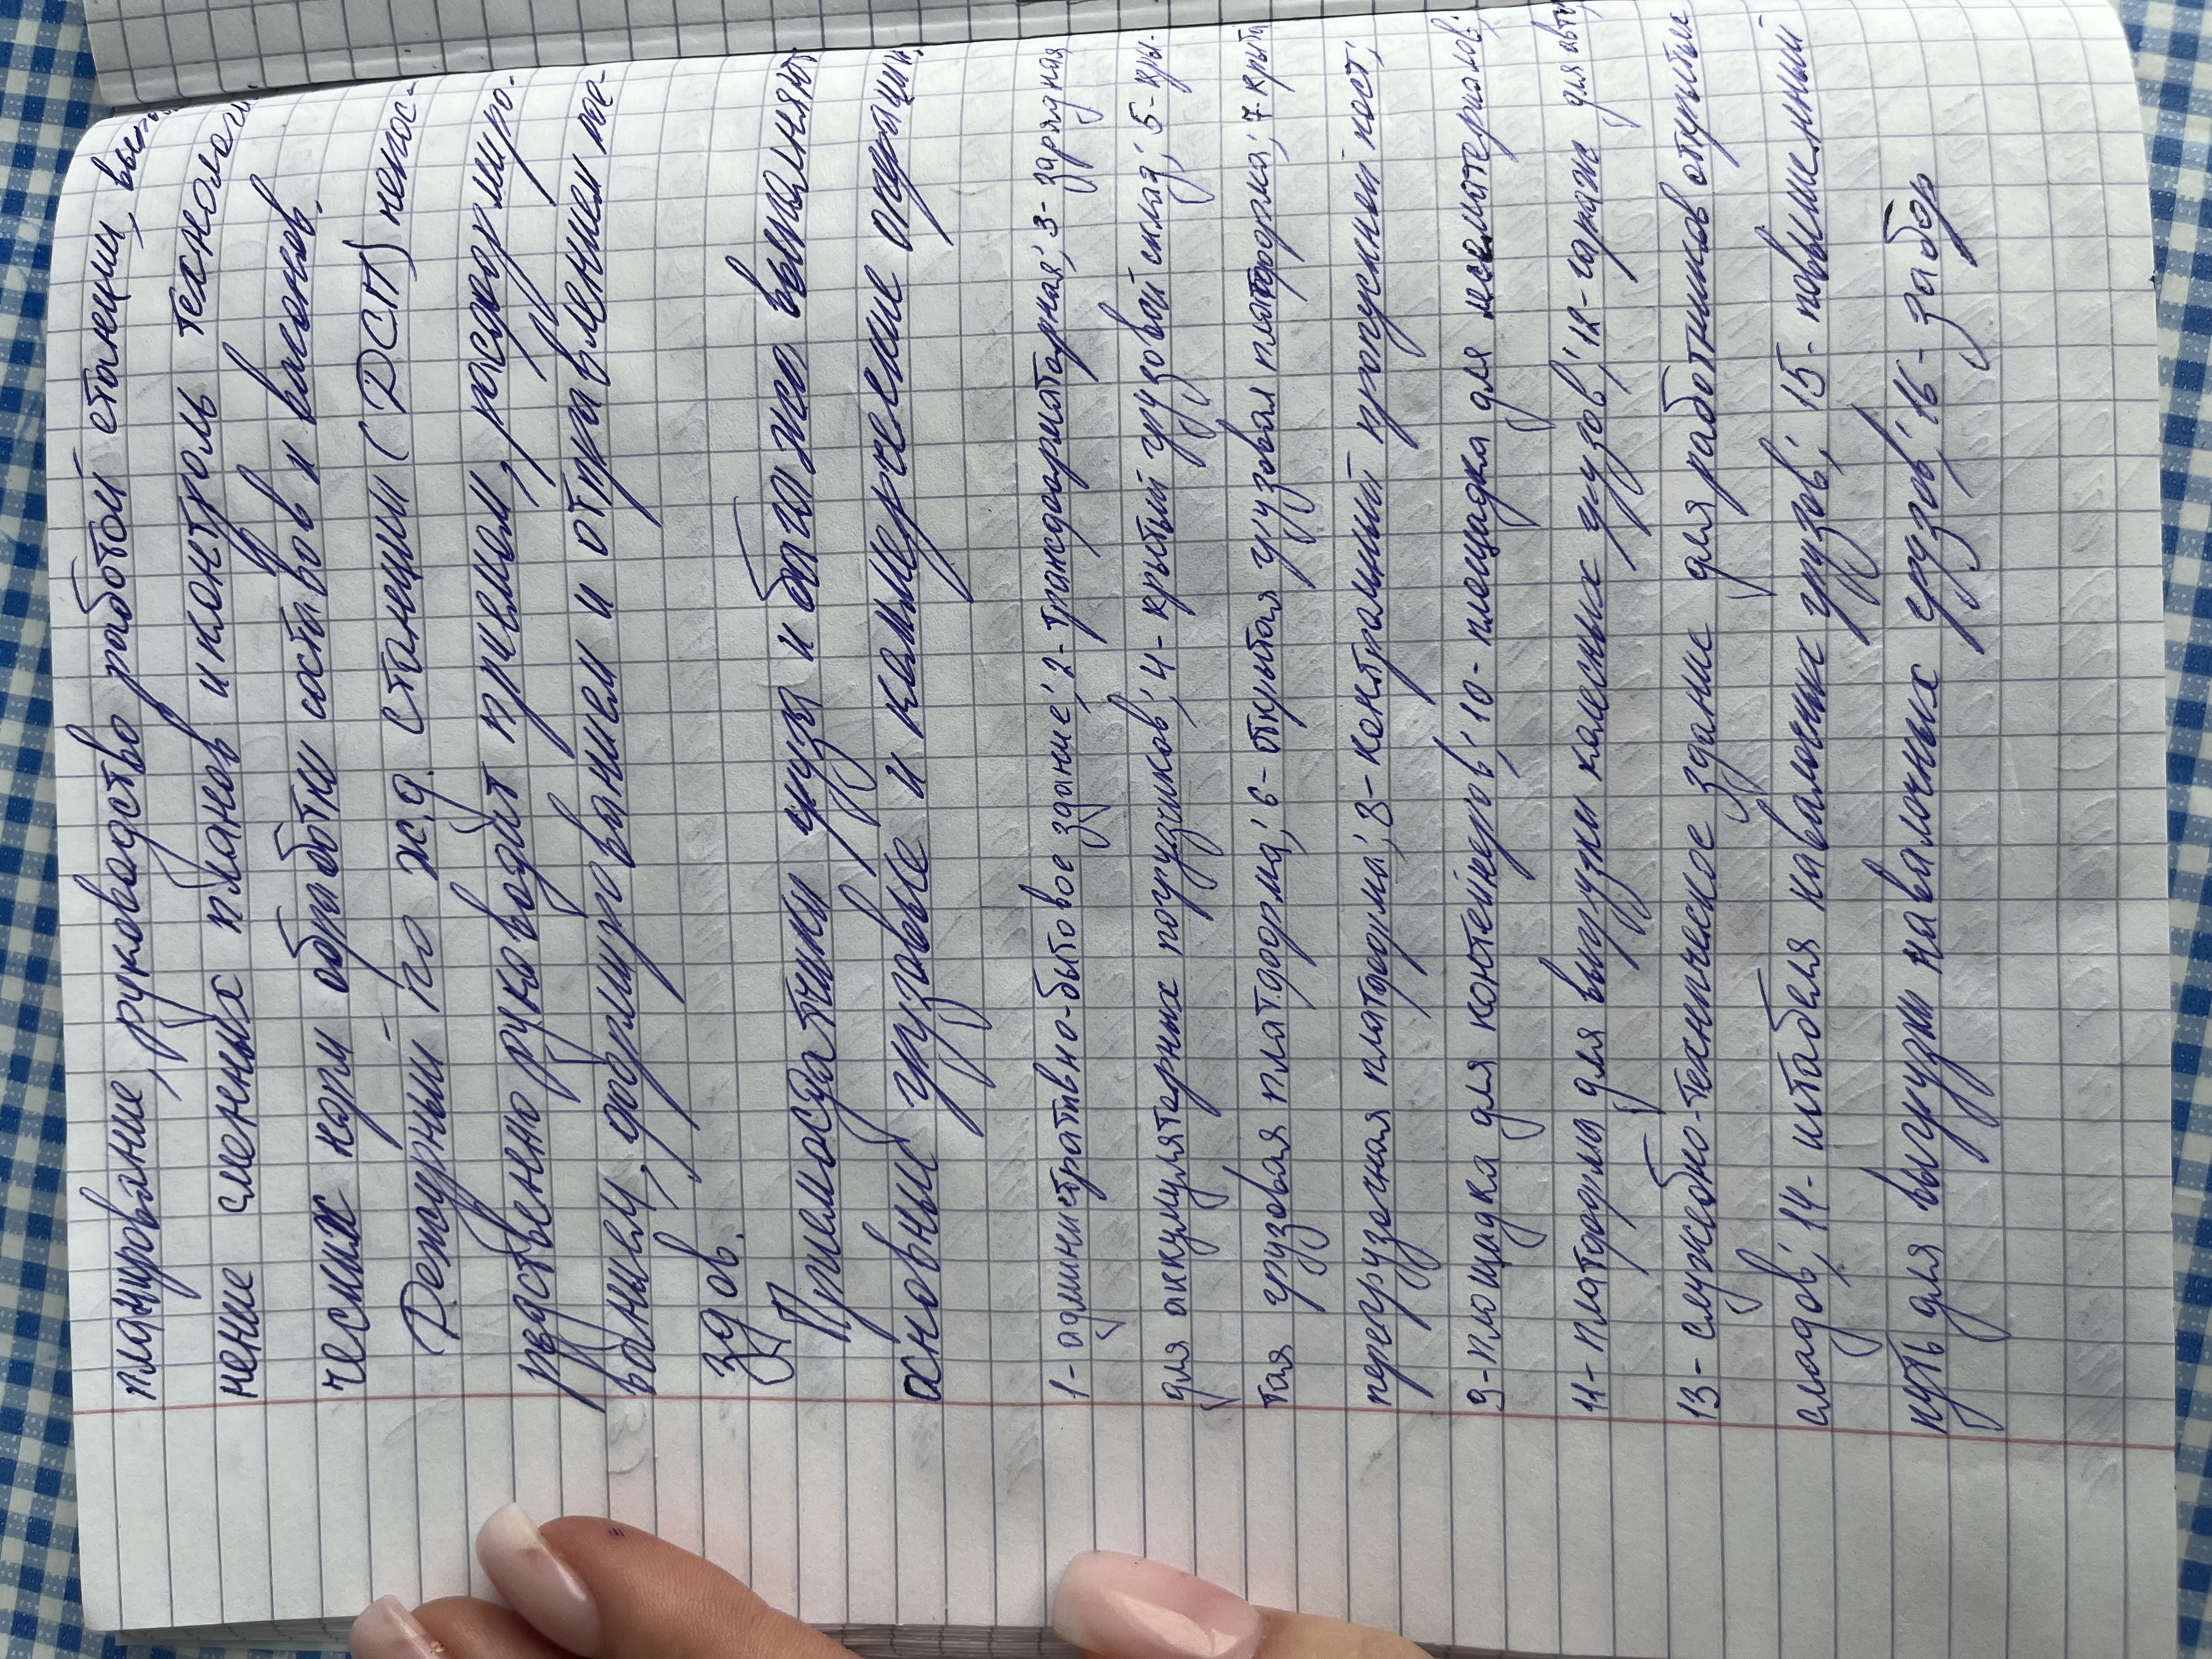 планирование, руководство работой станции, вы
нение сменных планов и контроль технологи
ческих норм обработки составов и вагонов.
Дежурный по ж.д. станции (ДСП) непос-
редственно руководит приемом, расформиро-
ванием, формированием и отправлением пое-
здов.
Приемосдатчики груза и багажа выполняют
основные грузовые и коммерческие операции.
1- административно-бытовое здание; 2- трансформаторная; 3- зарядная
для аккумуляторных погрузчиков; 4- крытый грузовой склад; 5- кры-
тая грузовая платформа; 6- открытая грузовая платформа; 7- крыта
перегрузочная платформа; 8- контрольный пропускной пост;
9- площадка для контейнеров; 10- площадка для лесоматериалов;
11- платформа для выгрузки колесных грузов; 12- гараж для авто
13- служебно-техническое здание для работников открытых
складов; 14- штабеля навалочных грузов; 15- повышенный
путь для выгрузки навалочных грузов; 16- забор